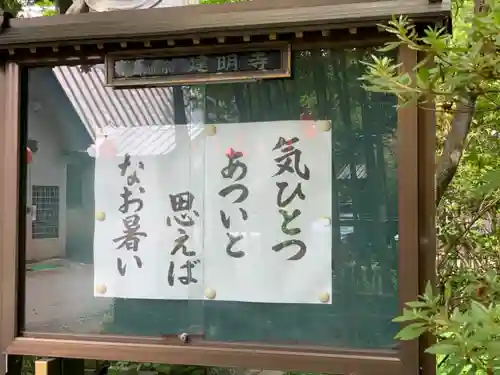 達明寺
気ひとつ
あついと
思えば
なお暑い